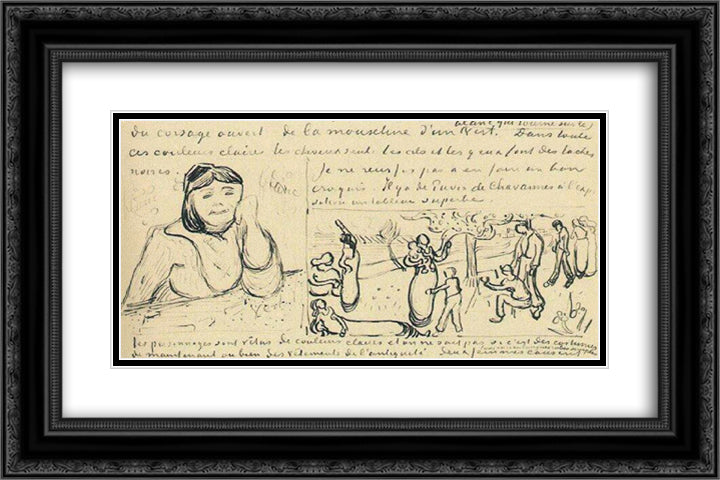 blanc qui tourne sur le
du corsage ouvert de la mousseline d'un vert. Dans toute
ces couleurs claires les cheveux seuls les cils et les yeux font des taches
noires.
Je ne reussis pas a en faire un bon
croquis. Il y a de Puvis de Chavannes a l'exp
sition un tableau superbe
les personnages sont vetus de couleurs claires et on ne sait pas si c'est des costumes
de maintenant ou bien des vetements de l'antiquité Deux femmes causent